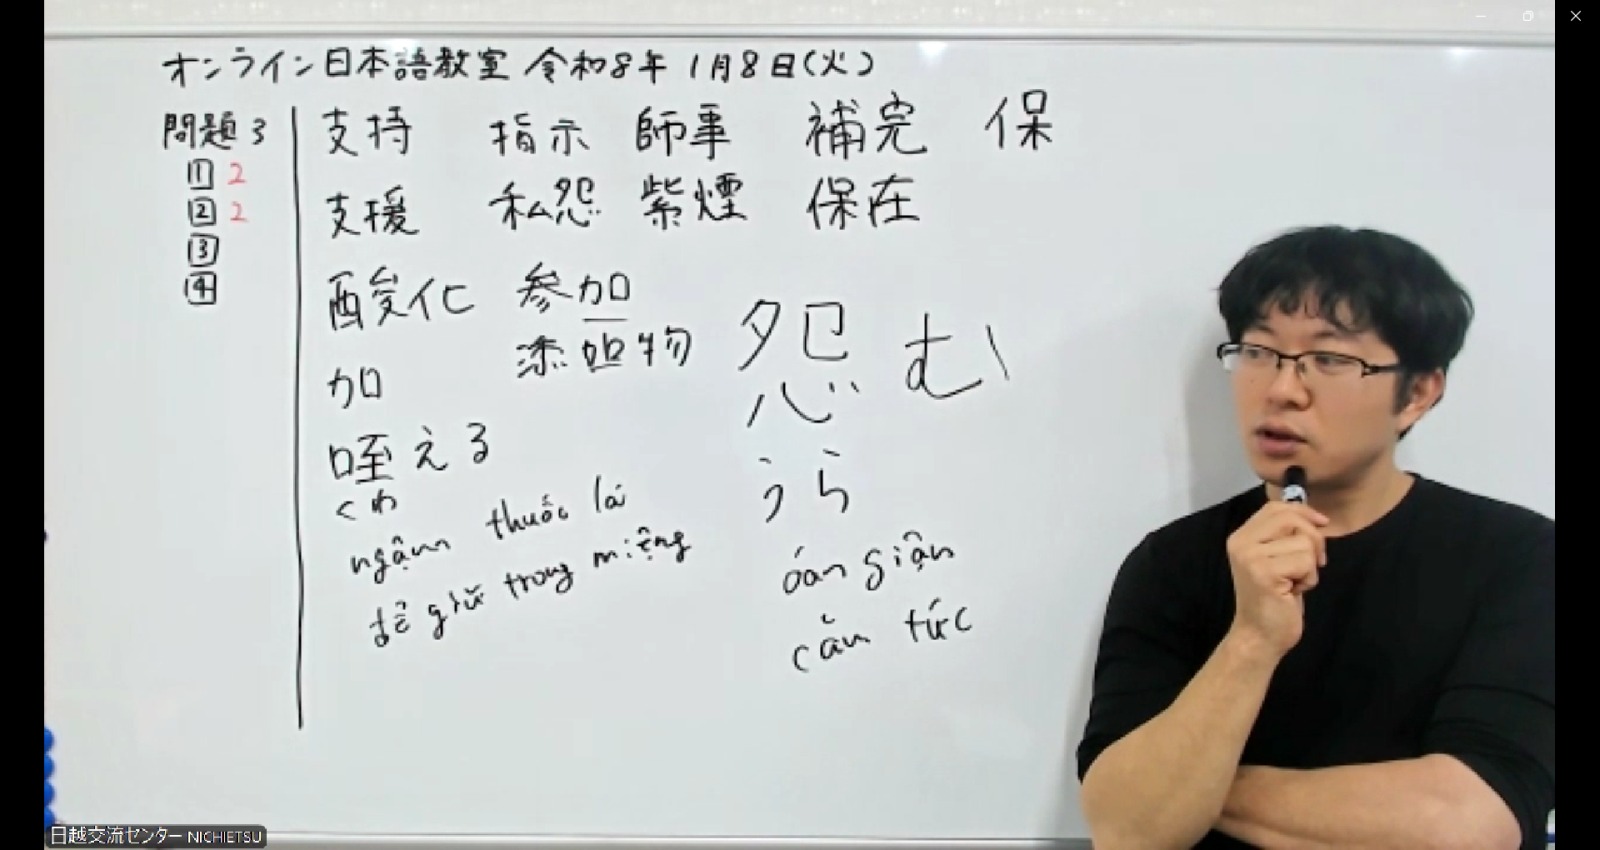 オンライン日本語教室 令和8年 1月8日(火)
問題3
1 2
2 2
3
4
支持 指示 師事 補完 保
支援 私怨 紫煙 保在
酸化 参加
添加物
加
咥える
くわ
ngậm thuốc lá
để giữ trong miệng
怨む
うら
oán giận
căm tức
日越交流センター NICHIETSU